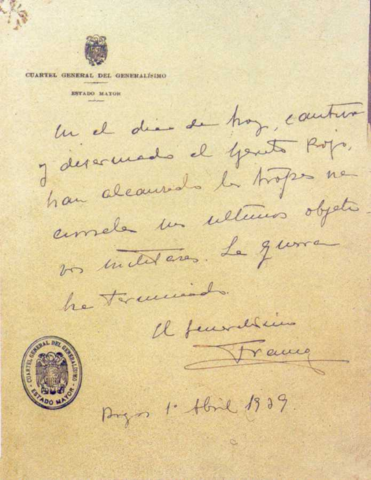 CUARTEL GENERAL DEL GENERALÍSIMO
ESTADO MAYOR
En el dia de hoy, cautivo
y desarmado el Ejercito Rojo,
han alcanzado las tropas na
cionales sus ultimos objeti
vos militares. La guerra
ha terminado
El Generalisimo
Franco
Burgos 1º Abril 1939
CUARTEL GENERAL DEL GENERALISIMO
ESTADO MAYOR